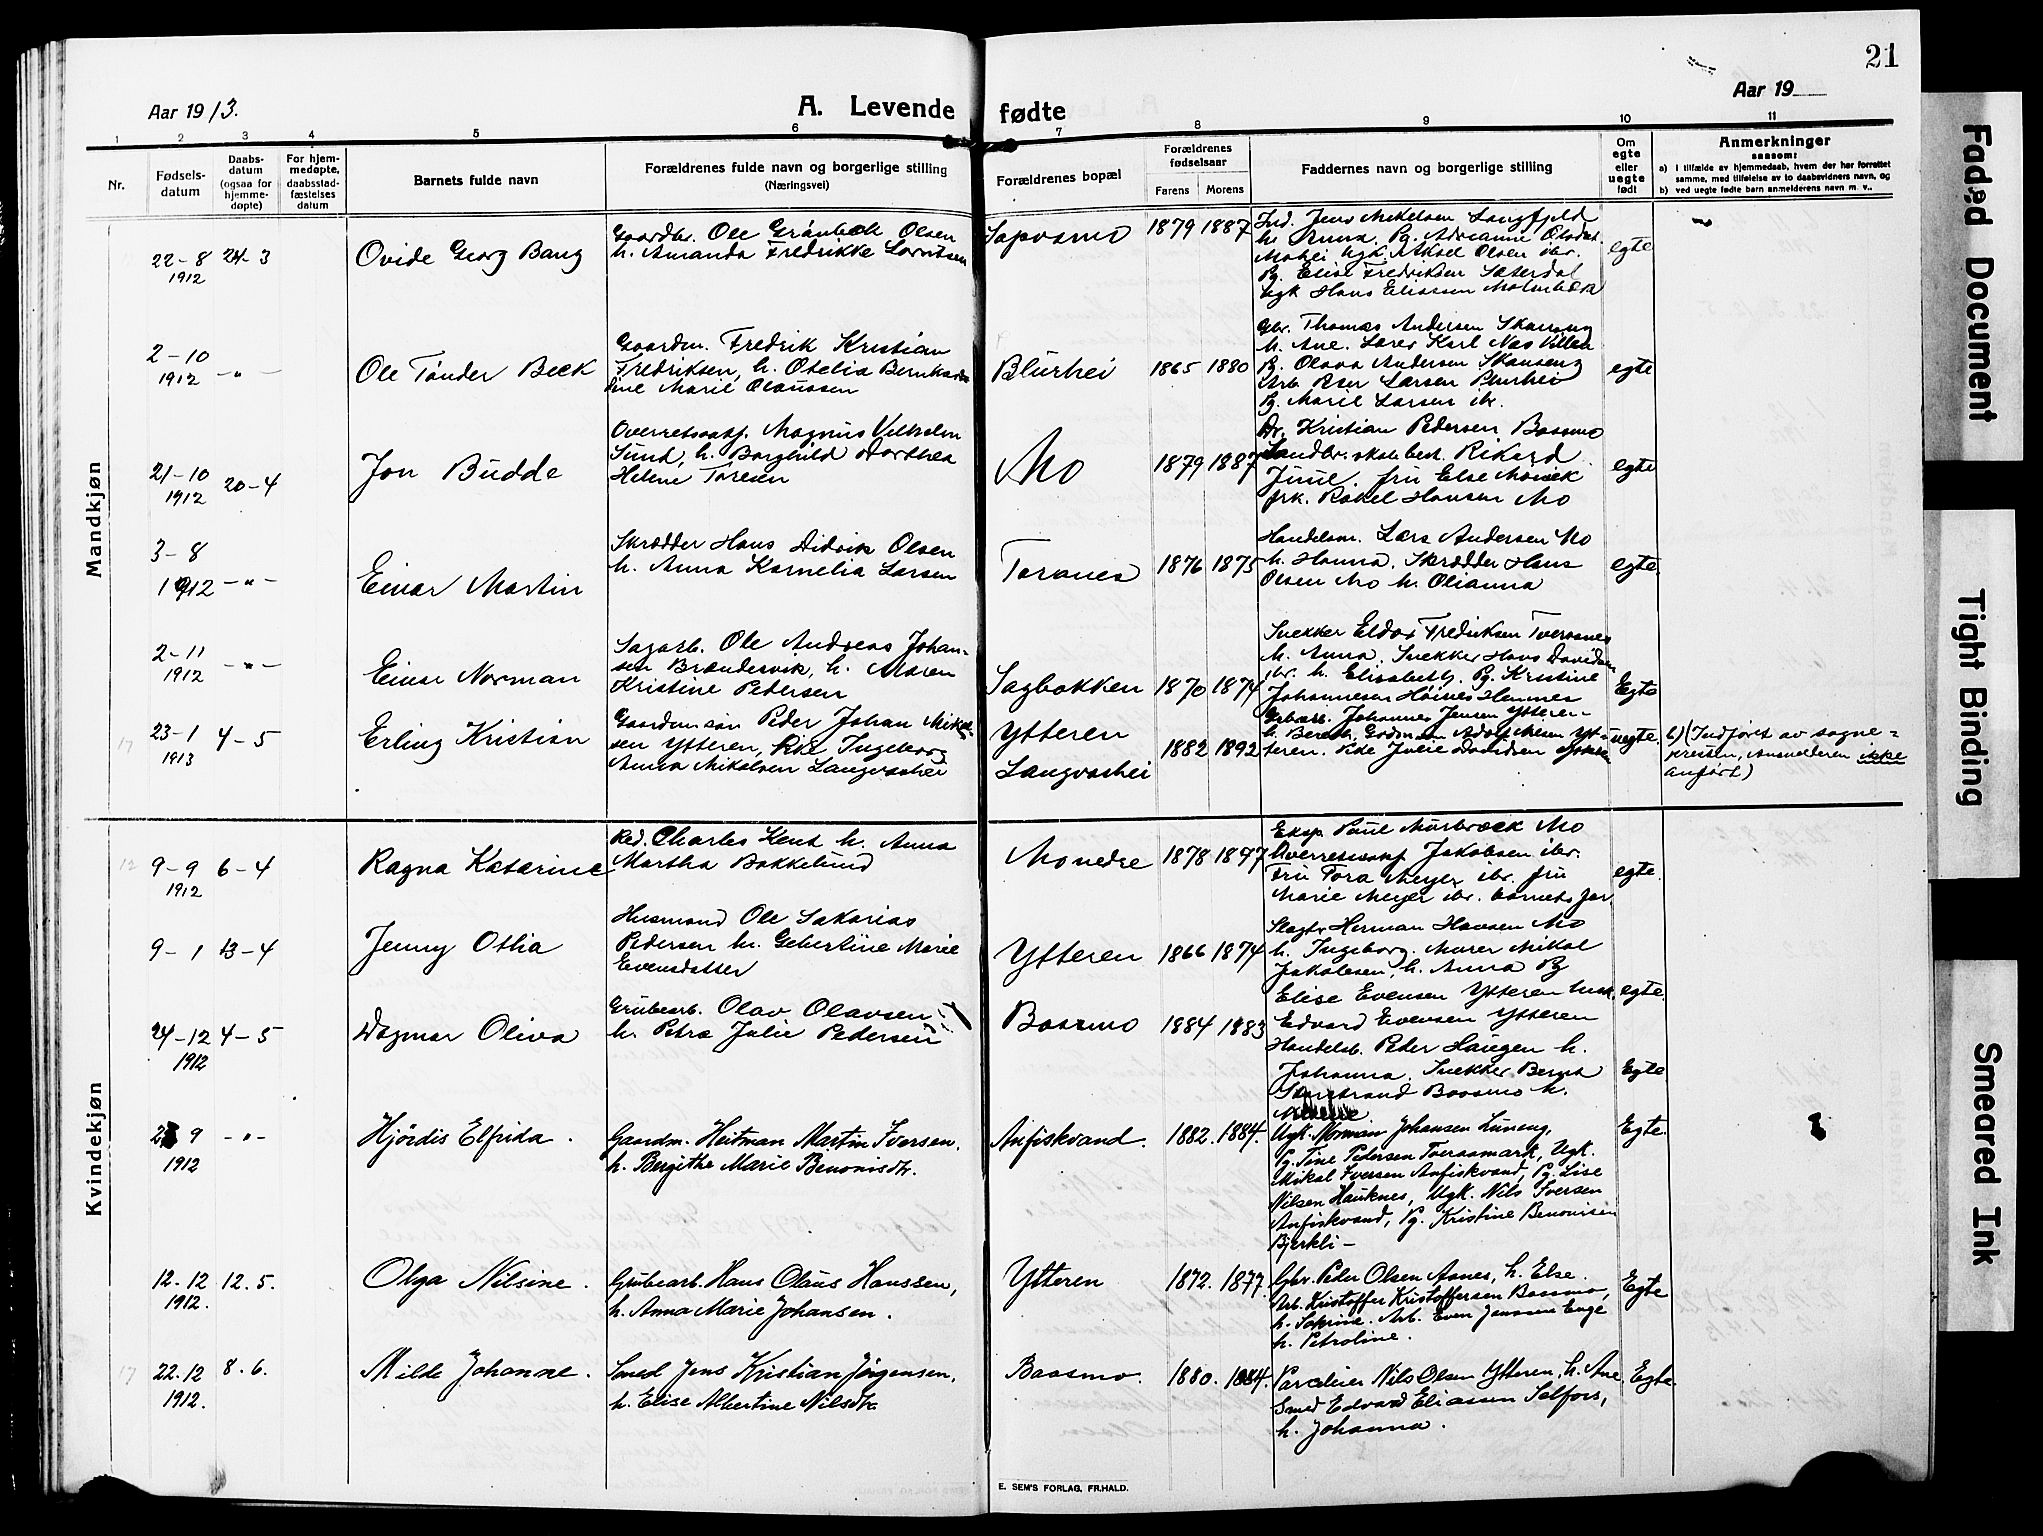 21
Aar 1913.
A. Levende
fødte
Aar 19
1 2 3 4 5 6 7 8 9 10 11
Nr.
Fødsels-
datum
Daabs-
datum
(ogsaa for
hjemme-
døpte)
For hjem-
medøpte,
daabsstad-
fæstelses
datum
Barnets fulde navn
Forældrenes fulde navn og borgerlige stilling
(Næringsvei)
Forældrenes bopæl
Forældrenes
fødselsaar
Farens Morens
Faddernes navn og borgerlige stilling
Om
egte
eller
uegte
født
Anmerkninger
saasom:
a) i tilfælde av hjemmedaab, hvem der har forrettet
samme, med tilføielse av to daabsvidners navn, og
b) ved uegte fødte barn anmelderens navn m. v..
Mandkjøn
22-8
1912
24-3
Ovide Georg Bang
Gaardbr. Ole Grönbech Olsen
h. Amanda Fredrikke Lorntsen
1879 1887
Ind. Jens Mikelsen Langfjeld
h. Anna. Pg. Adrianne Olsdat.
Ugk. Aksel Olsen ibr.
Pg. Elise Fredriksen Sæterdal
Ugk Hans Eliassen Malmbæk
egte
2-10
1912
-"-
Ole Tönder Beck
Gaardm. Fredrik Kristian
Fredriksen, h. Otelia Bernhar
dine Marie Olaussen
Blürhei
1865 1880
Gbr. Thomas Andersen Skanseng
h. Ane. Lærer Karl Nas Villen
Pg. Olava Andersen Skanseng
Arb. Peer Larsen Blurhei
Pg. Marie Larsen ibr.
egte
21-10
1912
20-4
Jon Budde
Overretssakf. Magnus Vilhelm
Sund, h. Borghild Dorthea
Helene Toresen
Mo
1879 1887
Dr. Kristian Pedersen Bossmo
Landbr. skolebest. Rikard
Juul. fru Else
frk. Rakel Hansen Mo
egte
3-8
1912
-"-
Einar Martin
Skrædder Hans Didrik Olsen
h. Anna Kornelia Larsen
Toranes
1876 1875
Handelsm. Lars Andersen Mo
h. Hanna. Skrædder Hans
Olsen Mo h. Olianna
egte.
2-11
1912
-"-
Einar Norman
Sagarb. Ole Andreas Johan-
sen Brændervik, h. Maren
Kristine Pedersen
Sagbakken
1870 1874
Snekker Eldor Fredriksen Tverånes
h. Anna. Snekker Hans Davidsen
ibr. h. Elisabeth. Pg. Kristine
Johannesen
Egte
17
23-1
1913
4-5
Erling Kristian
Gaardmansön Peder Johan Mikal
sen Ytteren, Pike Ingeborg
Anna Mikalsen Langvashei
Ytteren
Langvashei
1882 1892
Grbearb. Johannes Jensen Ytteren
h. Bereth, Godman Adolf
teren. Pike Julie Davidsen Ytteren
uegte.
b) (Indført av sogne=
presten, anmelderen ikke
anført)
Kvindekjøn
12
9-9
1912
6-4
Ragna Katarine
Red. Charles Kent h. Anna
Martha Bakkelund
Monedre
1878 1877
Eksp. Paul Mosbrock Mo
Overretssakf Jakobsen ibr.
Fru Tora Meyer ibr. fru
Marie Meyer ibr. barnets far
egte.
9-1
13-4
Jenny Otlia
Husmand Ole Sakarias
Pedersen h. Gebertine Marie
Evensdatter
Ytteren
1866 1874
Slagter Herman Hansen Mo
h. Ingeborg. Murer Mikal
Jakobsen, h. Anna Pg
Elise Evensen Ytteren Ungk.
Edvard Evensen Ytteren
egte.
24-12
1912
4-5
Dagmar Oliva
Grubearb. Olav Olavsen
h. Petra Julie Pedersen
Bossmo
1884 1883
Handelsb. Peder Haugen h.
Johanna. Snekker Bernt
Strandstrand Bossmo h.
Egte
9
1912
-"-
Hjördis Elfrida.
Gaardm. Heitman Martin Iversen.
h. Bergithe Marie Benonisdtr.
Anfiskvand.
1882. 1884.
Ugk. Norman Johansen Luneng,
Pg. Tine Pedersen Tveraamark, Ugk.
Mikal Iversen Anfiskvand, Pg. Lise
Nilsen Hauknes, Ugk. Nils Iversen
Anfiskvand, Pg. Kristine Benonisen
Bjerkli -
Egte.
12-12
1912.
12.5.
Olga Nilsine.
Grubearb. Hans Olaus Hanssen,
h. Anna Marie Johansen.
Ytteren
1872. 1877.
Gbr. Peder Olsen Aanes, h. Else.
Arb. Kristoffer Kristoffersen Bossmo,
h. Sofrine. Arb. Even Jenssen Enge
h. Petroline.
Egte
17
22.12
1912.
8.6.
Milde Johanne.
Smed Jens Kristian Jörgensen,
h. Elise Albertine Nilsdtr.
Bossmo.
1880. 1884.
Parcelleier Nils Olsen Ytteren, h. Ane.
Smed Edvard Eliassen Selfors,
h. Johanna.
Egte.
E. SEM'S FORLAG, FR.HALD.
Faded Document
Tight Binding
Smeared Ink